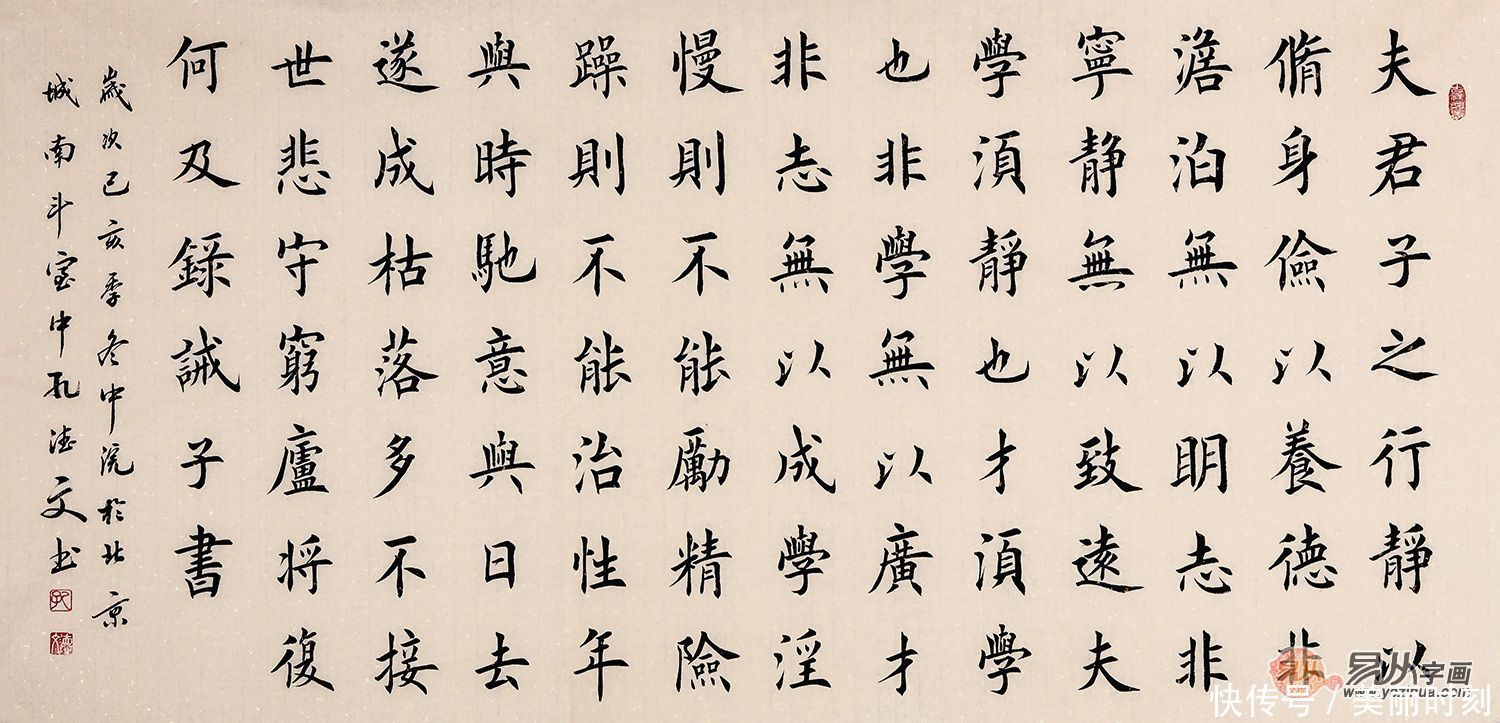 夫君子之行靜以
脩身儉以養德非
澹泊無以明志非
寧靜無以致遠夫
學須靜也才須學
也非學無以廣才
非志無以成學淫
慢則不能勵精險
躁則不能治性年
與時馳意與日去
遂成枯落多不接
世悲守窮廬將復
何及錄誡子書
歲次己亥季冬中浣於北京
城南斗室中孔德文书
易从字画
www.yczihua.com
快传号 / 美丽时刻